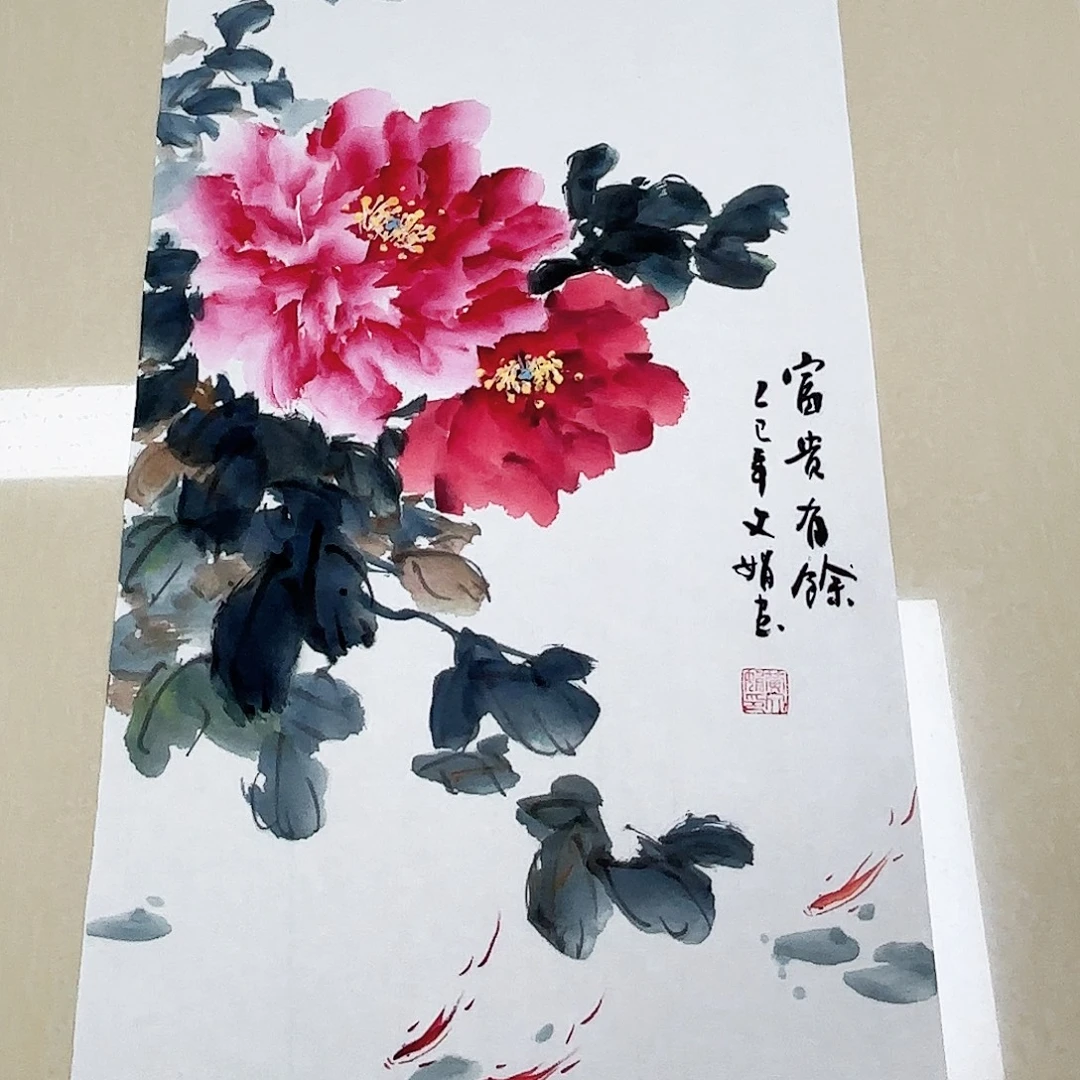 富貴有餘
乙巳年文娟画